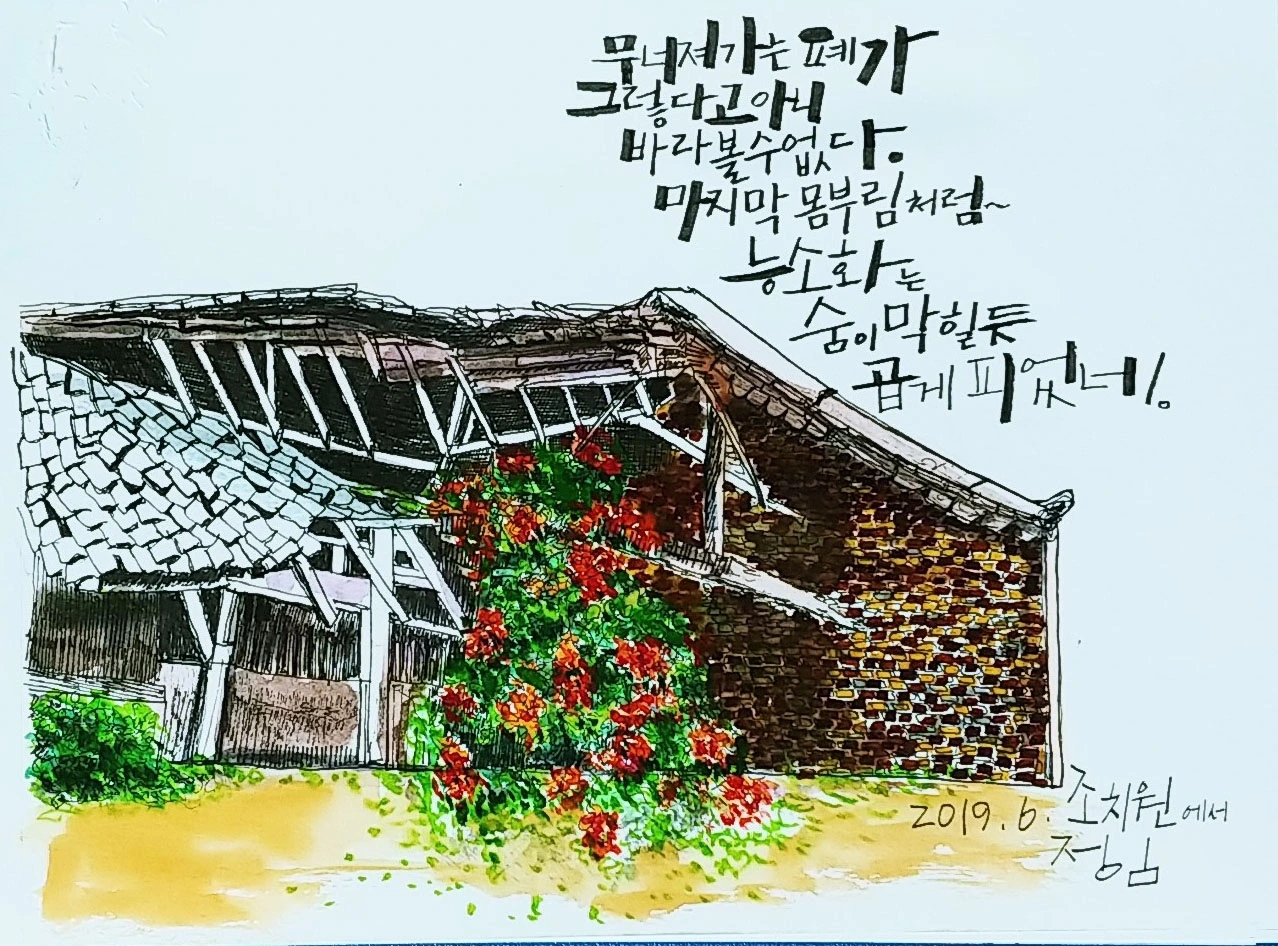 무너져가는 폐가
그렇다고 아니
바라볼수없다.
마지막 몸부림처럼~
능소화는
숨이 막힐듯
곱게 피었네!
2019.6. 조치원에서
정임